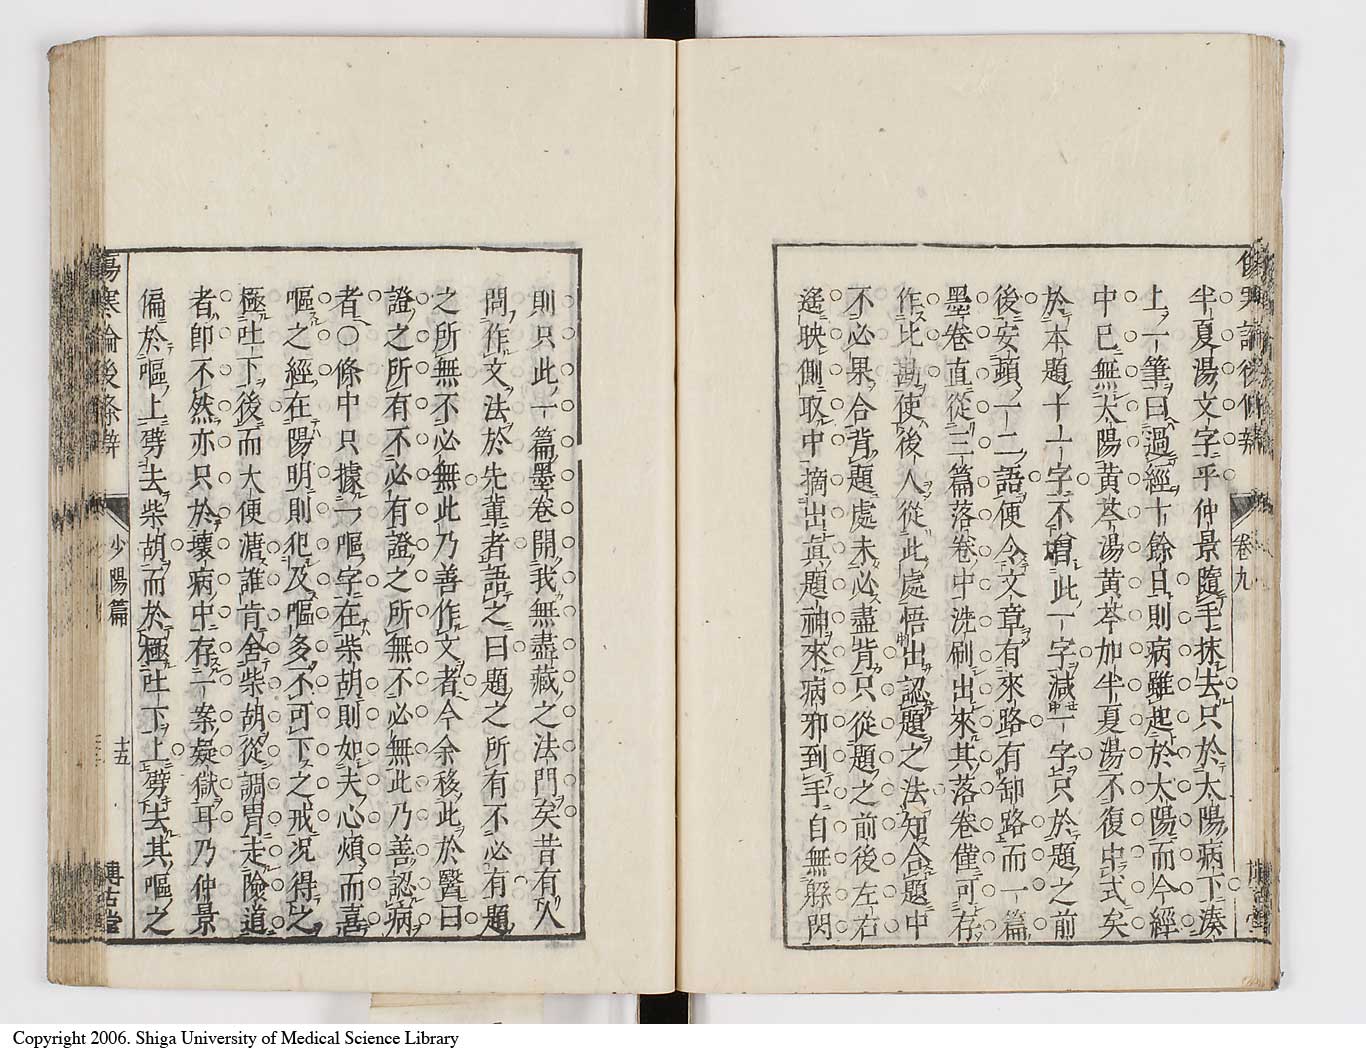 傷寒論後條辨
卷九
半夏湯文字乎仲景隨手抹去只於太陽病下湊
上一筆曰過經十餘日則病雖起於太陽而今經
中已無太陽黃芩湯黃芩加半夏湯不復中式矣
於本題十一字不增此一字減一字只於題之前
後安頭一二語便令文章有來路有卸路而一篇
墨卷直從三篇落卷中洗刷出來其落卷僅可存
作比勘使後人從此處悟出認題之法知合題中
不必果合背題處未必盡背只從題之前後左右
遙映側取中摘出真題神來病邪到手自無躲閃
則只此一篇墨卷開我無盡藏之法門矣昔有人
問作文法於先輩者語之曰題之所有不必有題
之所無不必無此乃善作文者今余移此於醫曰
證之所有不必有證之所無不必無此乃善認病
者〇條中只據一嘔字在柴胡則如夫心煩而喜
嘔之經在陽明則犯及嘔多不可下之戒況得之
極吐下後而大便溏誰肯舍柴胡從調胃走險道
者卽不然亦只於壞病中存一案疑獄耳乃仲景
偏於嘔上劈去柴胡而於極吐下上劈去其嘔之
傷寒論後條辨
少陽篇
十五
Copyright 2006. Shiga University of Medical Science Library